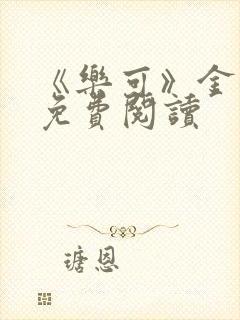 《樂可》全
免費閱讀
瑭恩